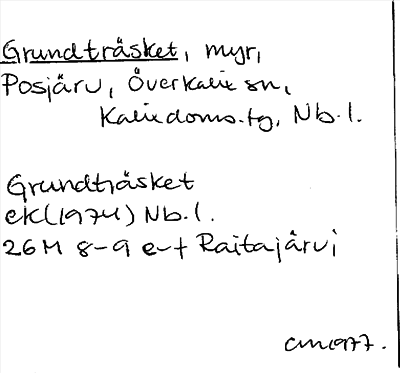 Grundträsket, myr,
Posjärv, Överkalix sn,
Kalix doms.tg, Nb.l.
Grundträsket
ek(1974) Nb.l.
26M 8-9 e-f Raitajärvi
CM1977.